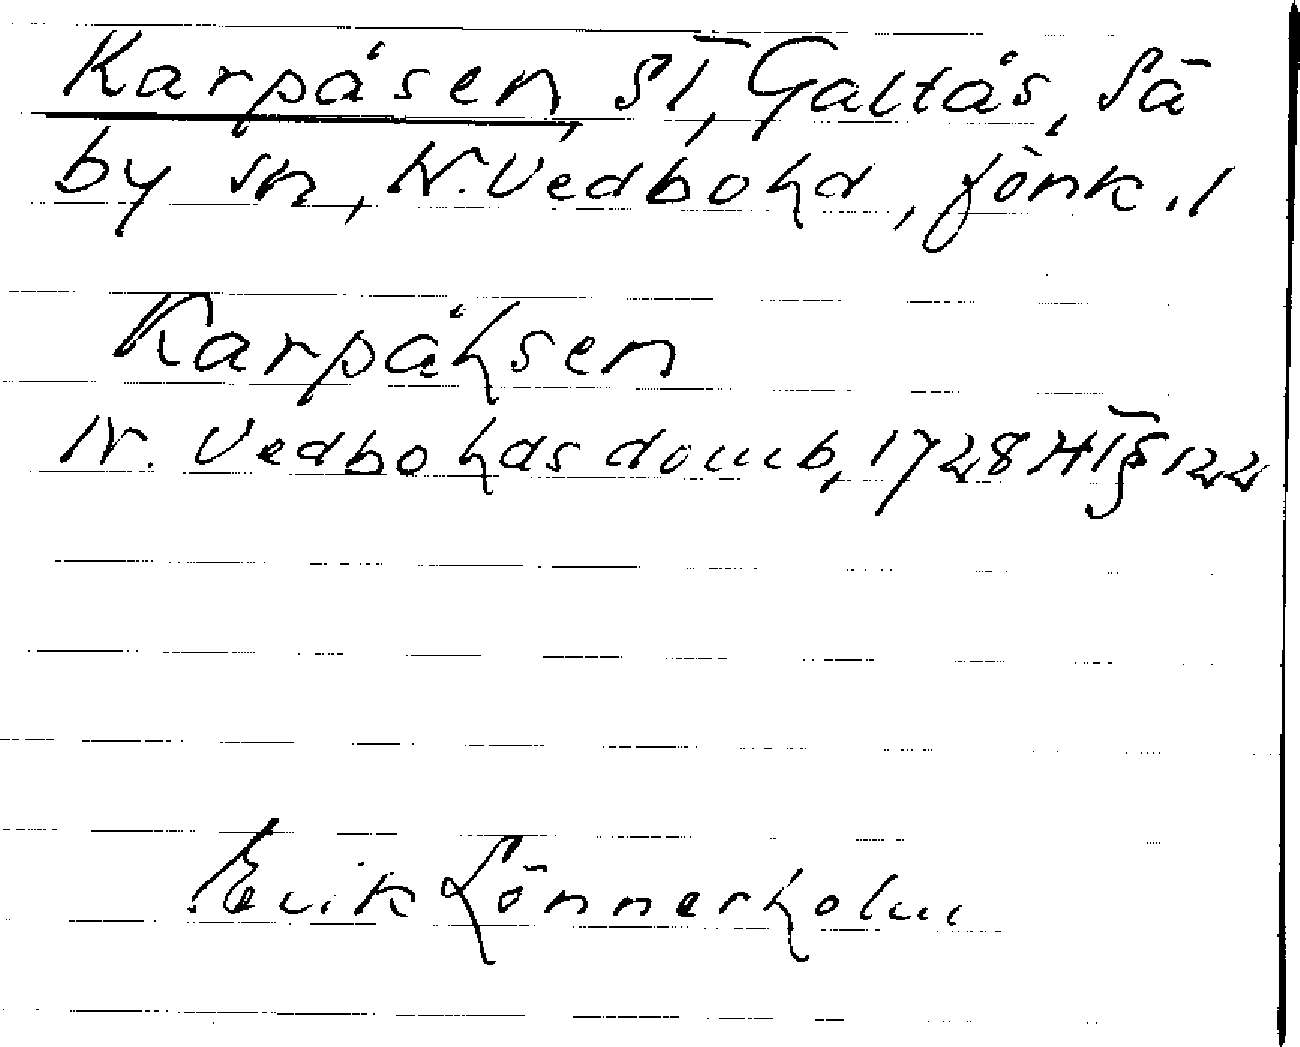 Karpåsen, St, Galtås, Sä
by sn, N. Vedbohd, Jönk. l
Karpåhsen
N. Vedbo hds domb, 1728 HT § 122
Erik Lönnerholm